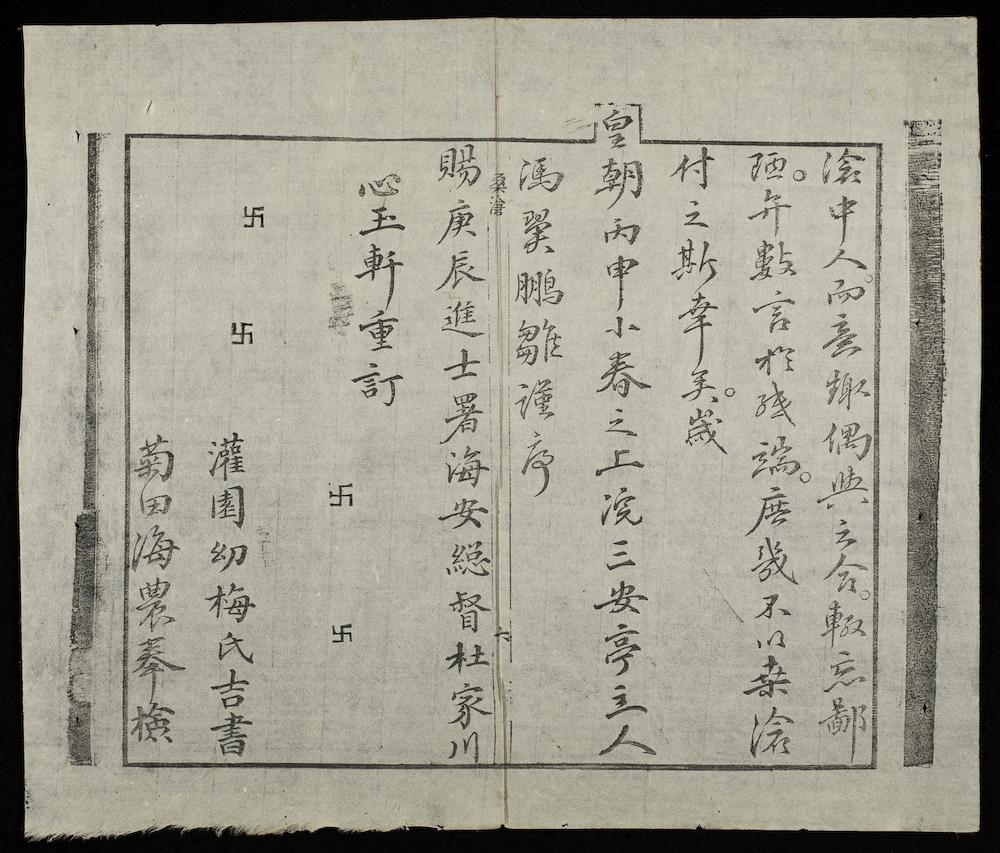 滄中人。而意趣偶與之合。輙忘鄙
陋。弁數言於端。庶幾不以桑滄
付之斯幸矣。歲
皇朝丙申小春之上浣三安亭主人
馮翼鵬雛謹序
桑滄 六
賜庚辰進士署海安緫督杜家川
心玉軒重訂
卍 卍
卍 卍
灌園幼梅氏吉書
菊田海農奉檢